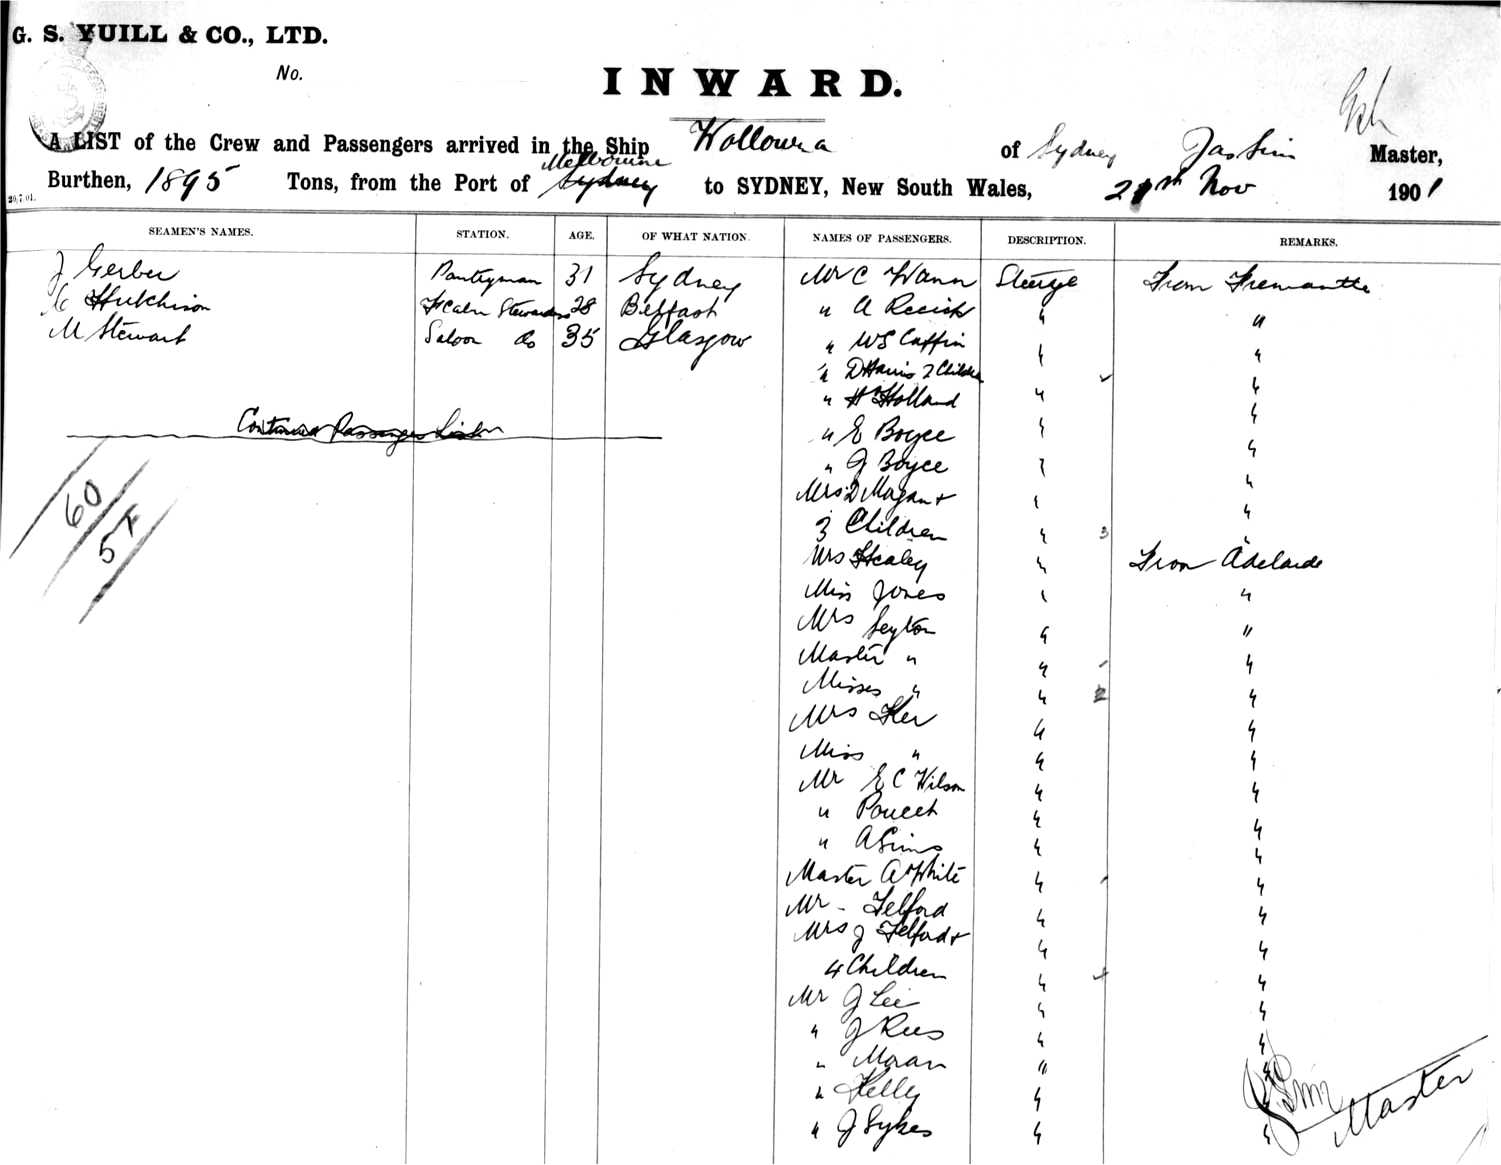 G. S. YUILL & CO., LTD.
No.
INWARD.
A LIST of the Crew and Passengers arrived in the Ship Wollowra of Sydney Jas Sim Master,
Burthen, 1895 Tons, from the Port of Sydney Melbourne to SYDNEY, New South Wales, 21st Nov 1901
20.7.01.
SEAMEN'S NAMES. STATION. AGE. OF WHAT NATION. NAMES OF PASSENGERS. DESCRIPTION. REMARKS.
J Gerber Pantryman 31 Sydney Mr C Wann Steerage From Fremantle
Hutchison Stewardess 28 Belfast " A " "
M Stewart Saloon Do 35 Glasgow " W S Caffin " "
" D Harris 2 Children "
" H Holland " "
Continued Passengers List
" E Boyce " "
" J Boyce " "
60
54
Mrs D Magan + " "
3 Children " 3
Mrs Healey " From Adelaide
Miss Jones " "
Mrs Leyton " "
Master " " "
Misses " " 2 "
Mrs Ker " "
Miss " " "
Mr E C Wilson " "
" Poucet " "
" A Sims " "
Master A White " "
Mr - Telford " "
Mrs J Telford + " "
4 Children " 4 "
Mr J Lee " "
" J Rees " "
" Moran " "
" Kelly " "
" J Sykes " "
J Sim
Master